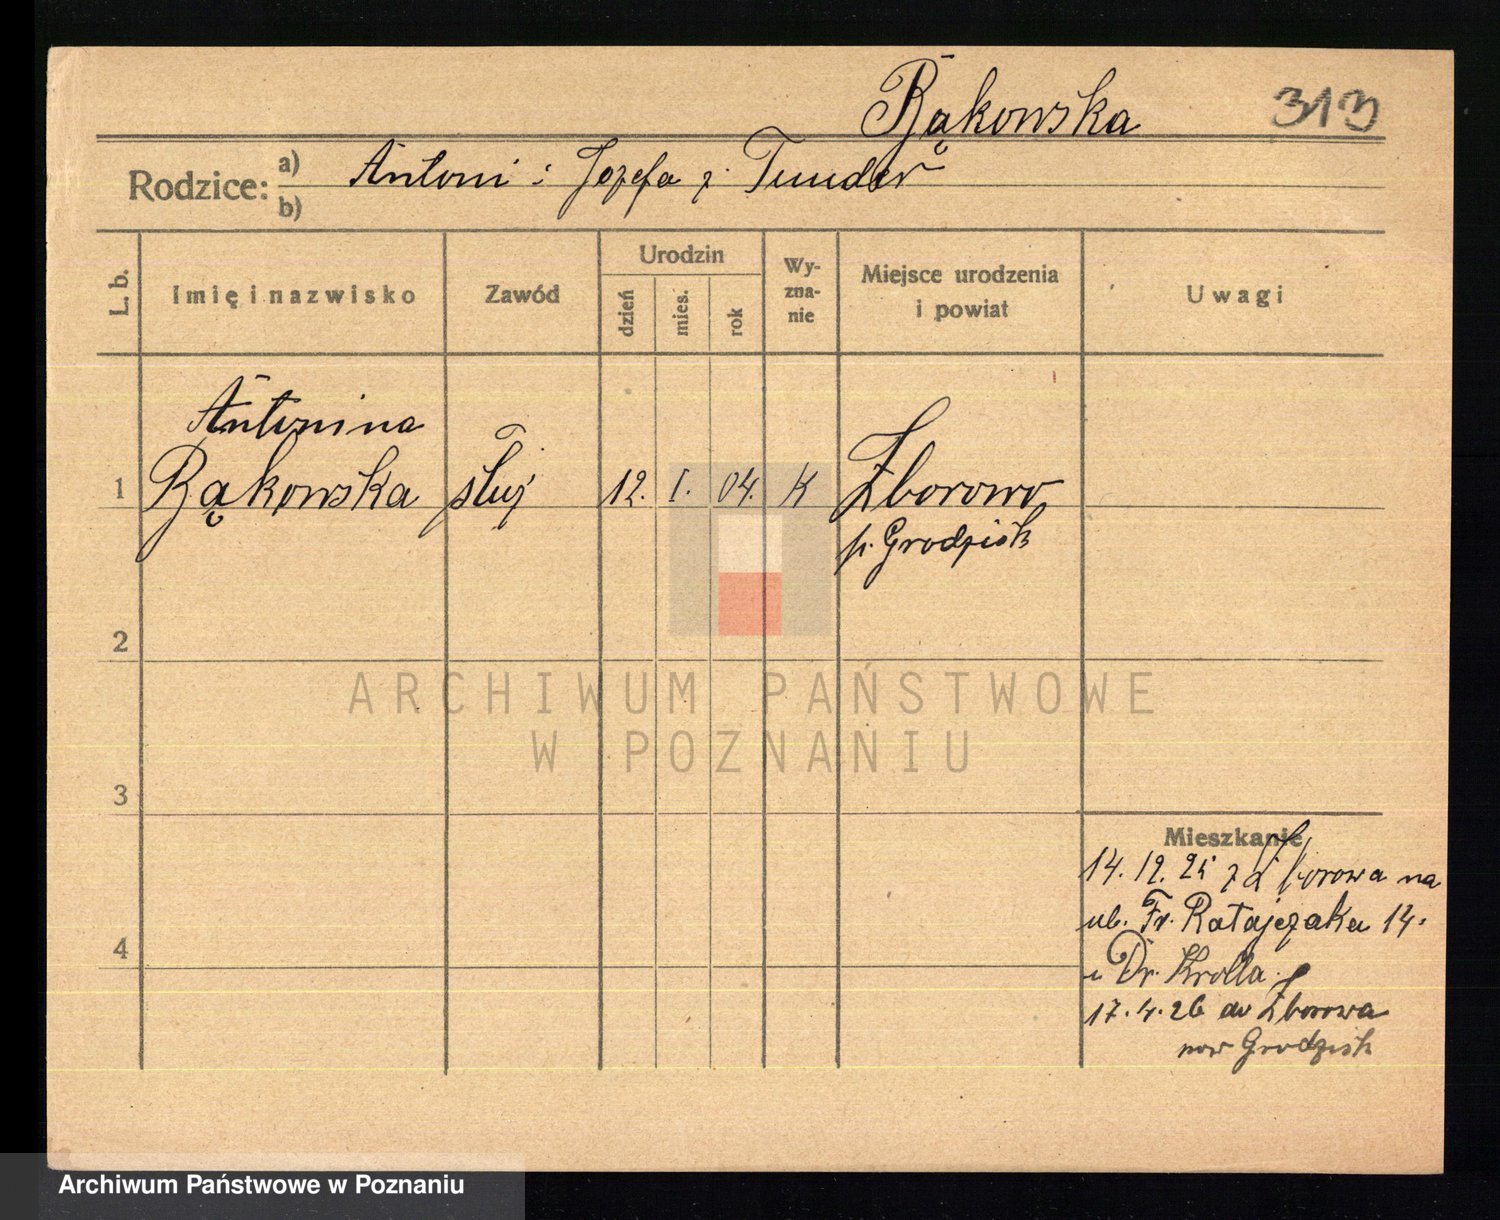 Bąkowska 313
Rodzice: a) b) Antoni i Józefa z
L. b.
Imię i nazwisko
Zawód
Urodzin
dzień
mies.
rok
Wy-
zna-
nie
Miejsce urodzenia
i powiat
Uwagi
Antonina
1 Bąkowska służ 12. I. 04. K Zborowo
p. Grodzisk
2
3
4
Mieszkanie
14. 12. 25 z Zborowa na
ul. Fr. Ratajczaka 14.
u Dr. Krolla.
17. 4. 26 do Zborowa
pow Grodzisk
ARCHIWUM PAŃSTWOWE
W POZNANIU
Archiwum Państwowe w Poznaniu